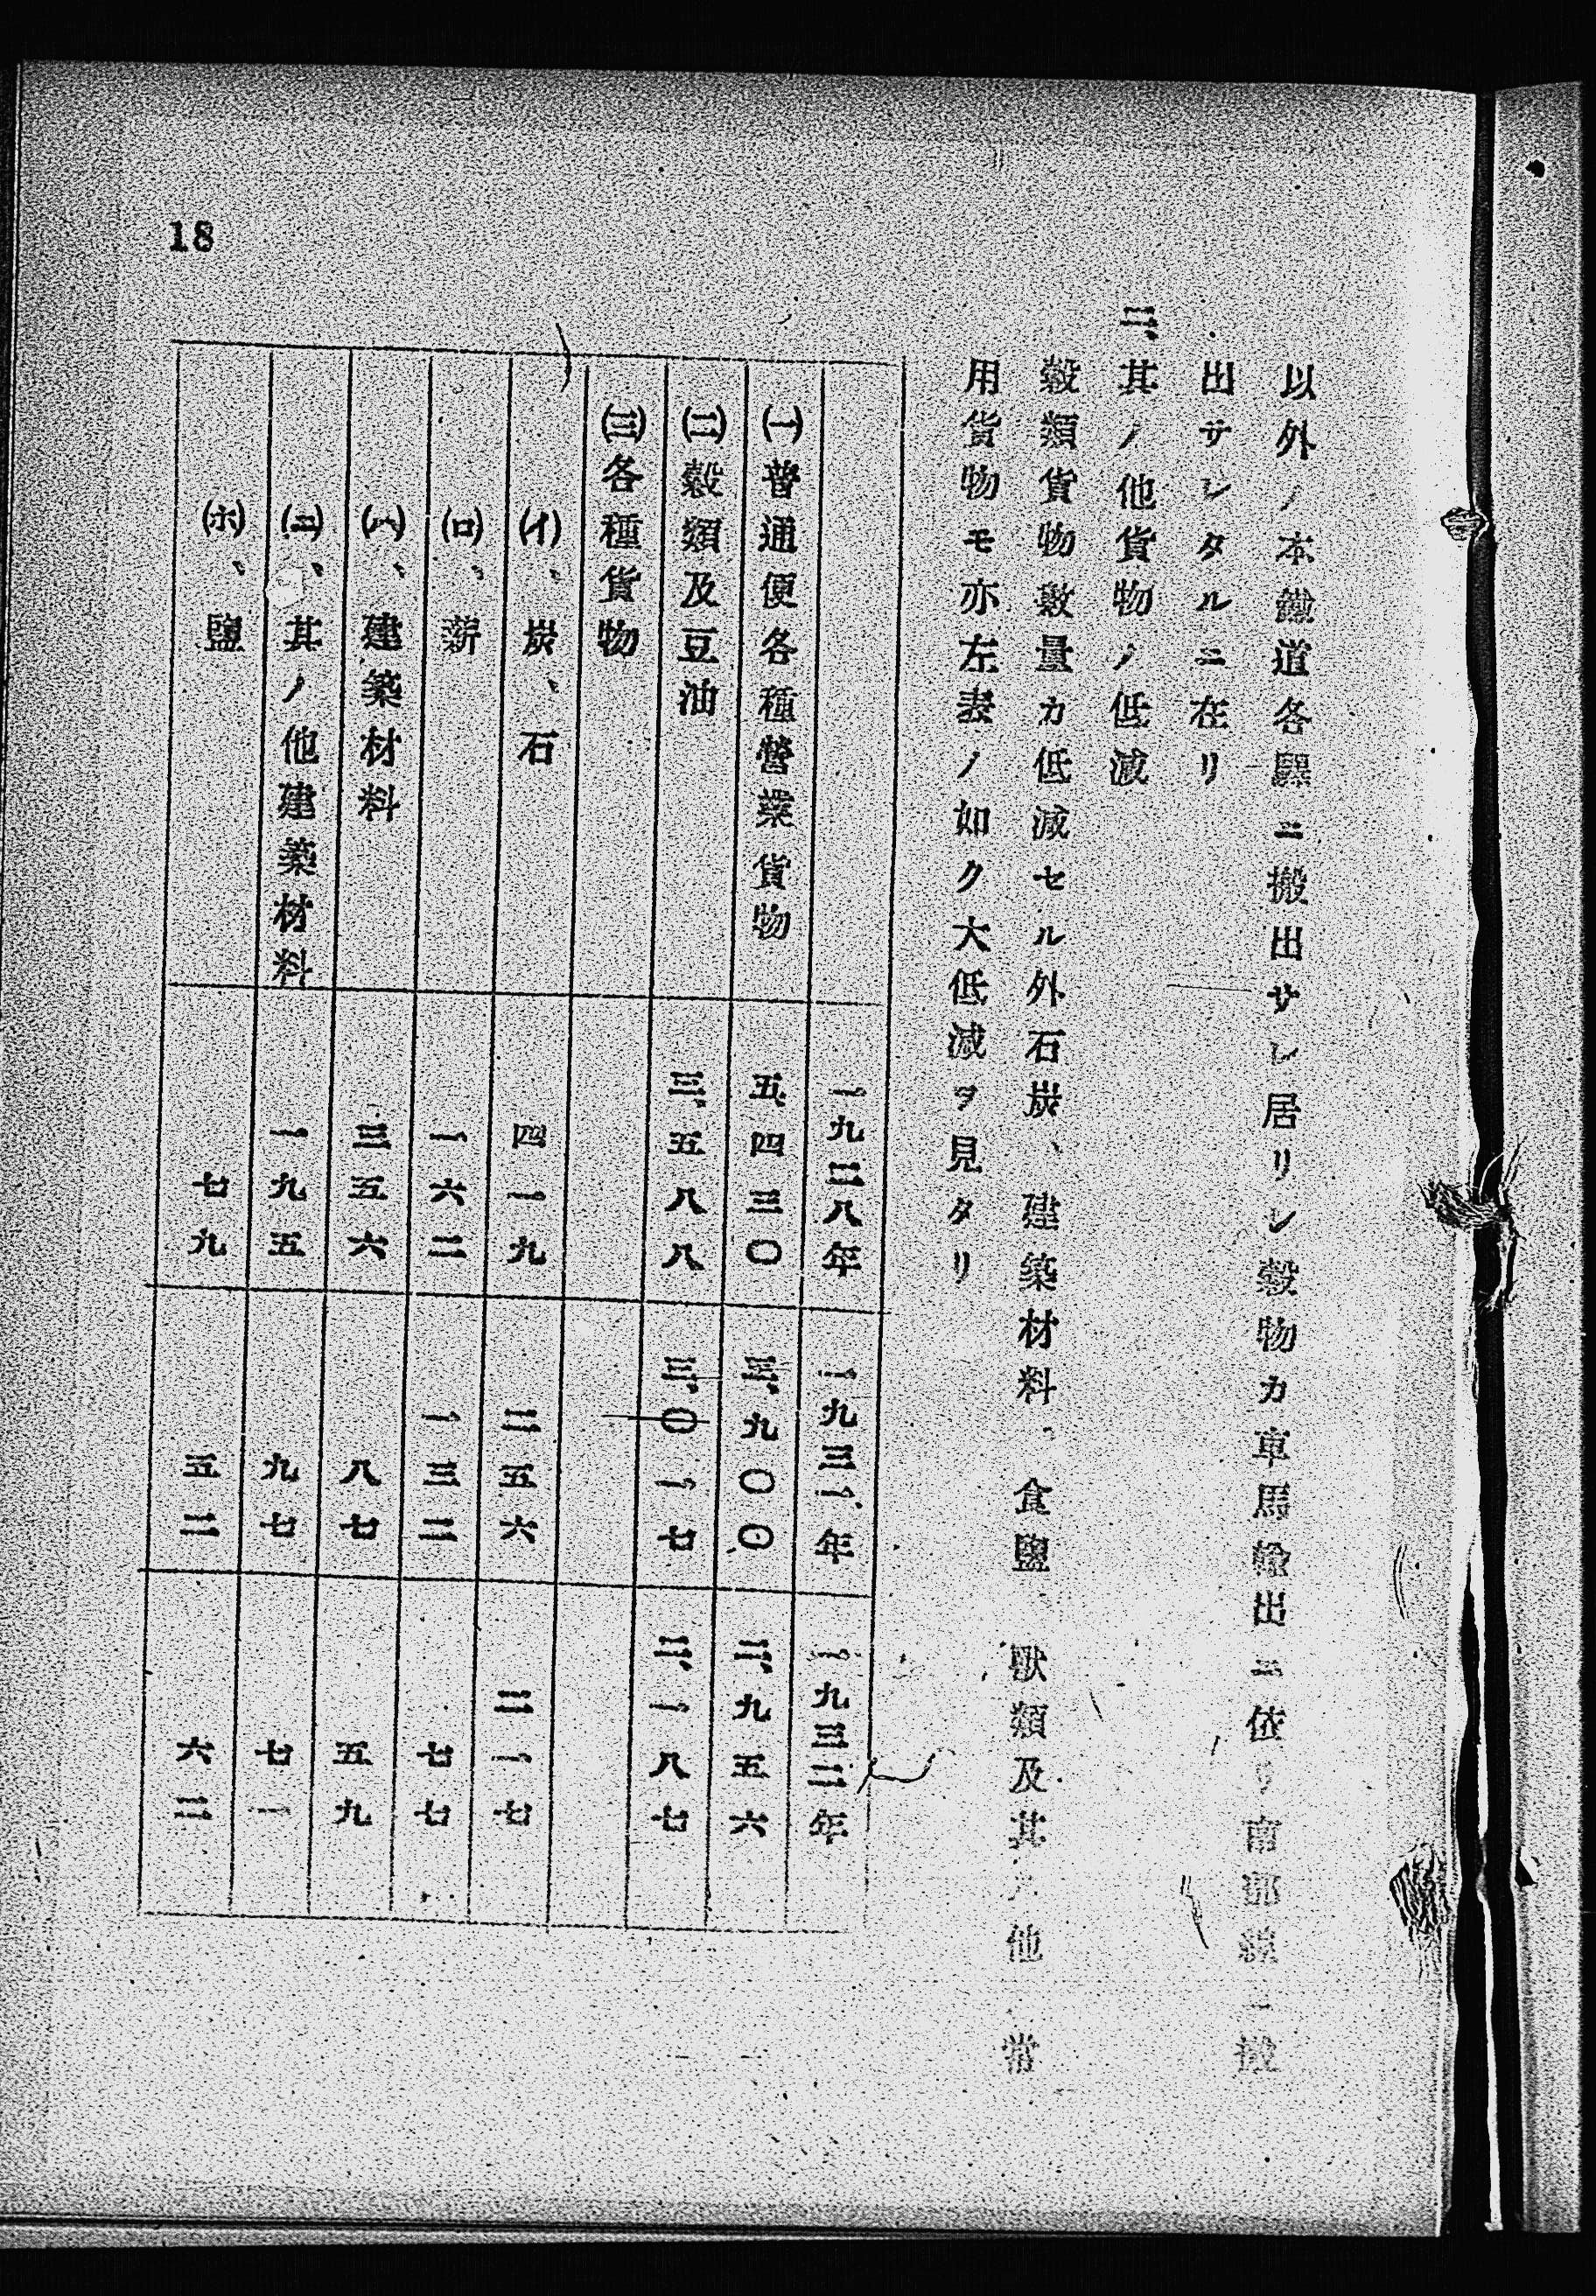 以外ノ本鐵道各驛ニ搬出サレ居リシ穀物カ車馬輸出ニ依リ南部線ニ搬
出サレタルニ在リ
二、其ノ他貨物ノ低減
穀類貨物數量カ低減セル外石炭、建築材料、食鹽、獸類及其ノ他、常
用貨物モ亦左表ノ如ク大低減ヲ見タリ
一九二八年 一九三一年 一九三二年
㈠普通便各種營業貨物 五、四三〇 三、九〇〇 二、九五六
㈡穀類及豆油 三、五八八 三、〇一七 二、一八七
㈢各種貨物
(イ)、炭、石 四一九 二五六 二一七
(ロ)、薪 一六二 一三二 七七
(ハ)、建築材料 三五六 八七 五九
(ニ)、其ノ他建築材料 一九五 九七 七一
(ホ)、鹽 七九 五二 六二
18